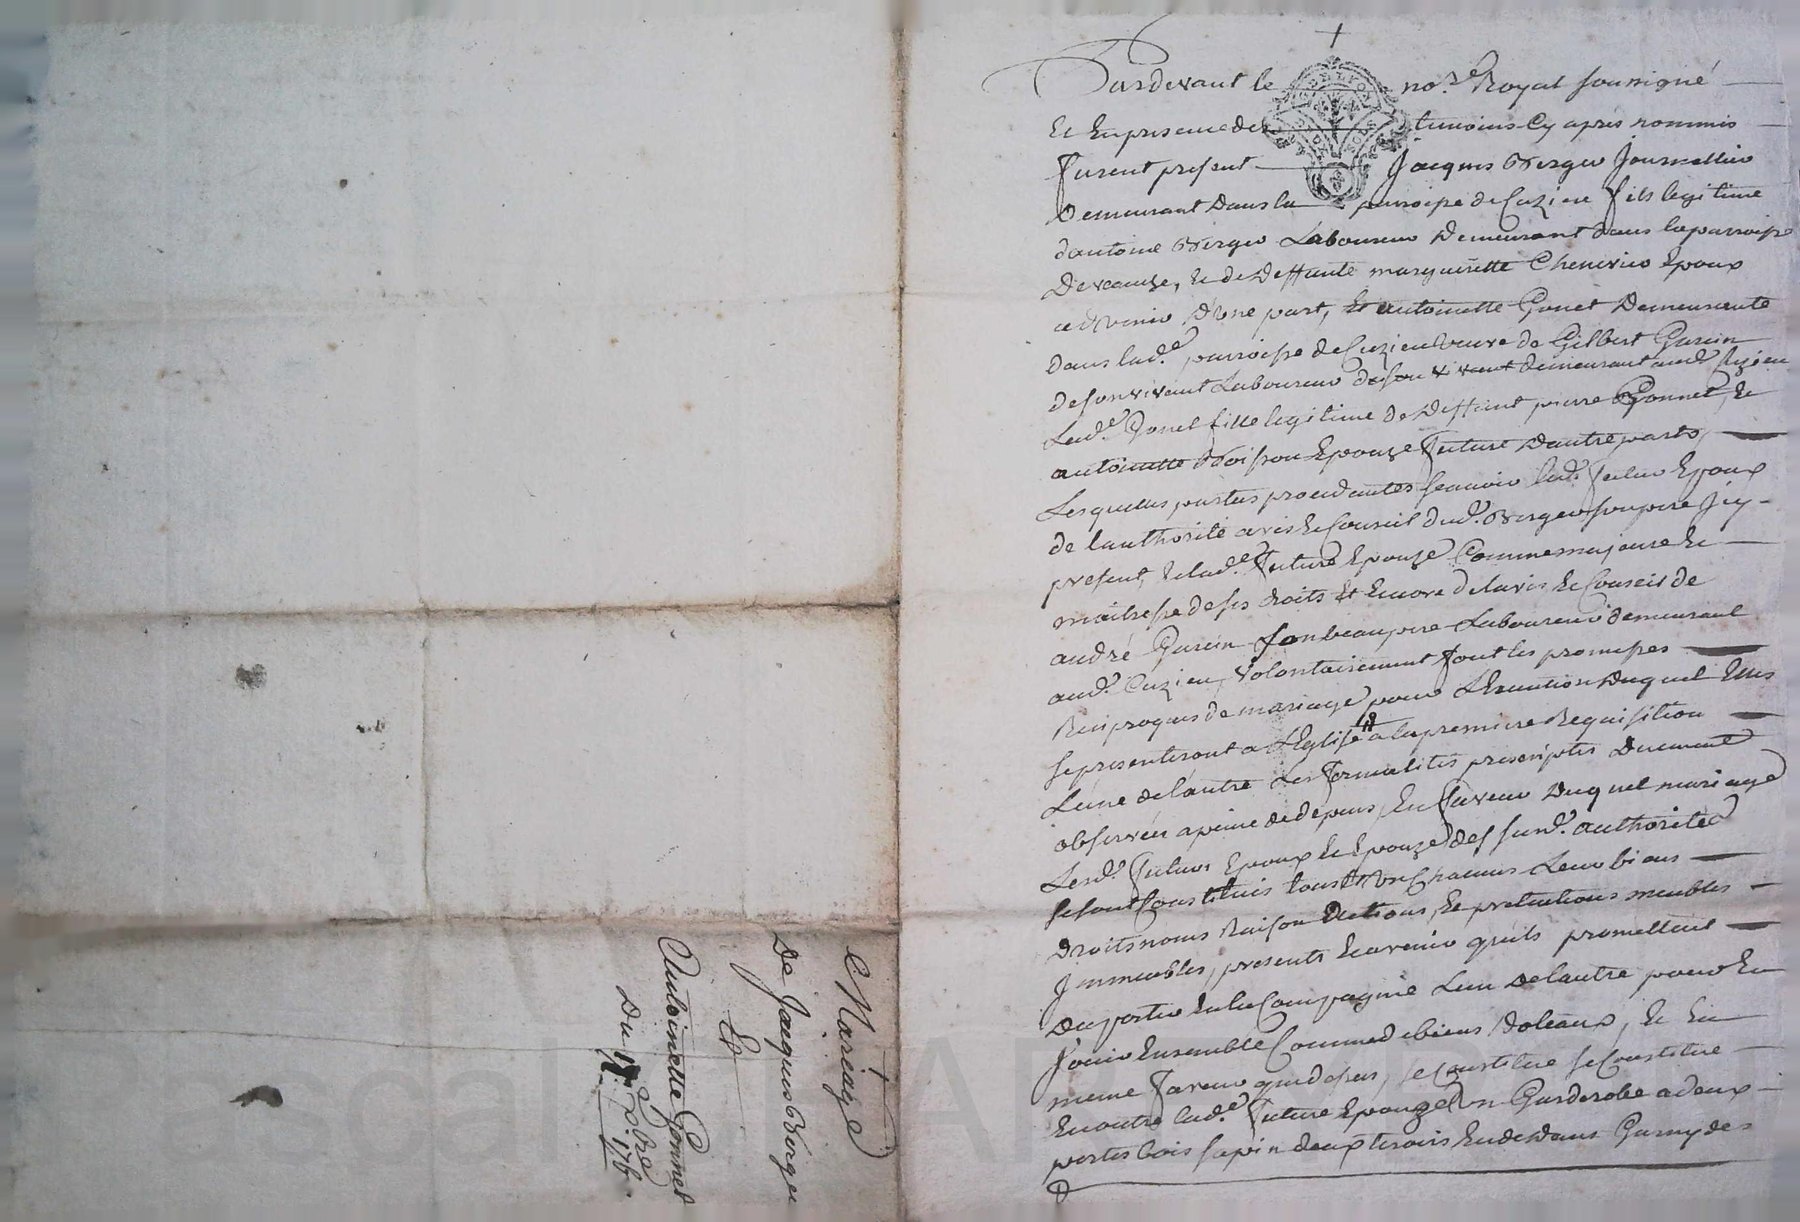 Pardevant le no.re Royal soussigné
Et En presence des temoins Cy apres nommés
Furent present Jacques Verger Journallier
Demeurant Dans la parroisse de Cuzieu fils legitime
dantoine Verger Laboureur Demeurant dans la parroisse
De veauche, Et de Deffunte margueritte Chenevier Epoux
advenir D'une part, Et antoinette Gonet Demeurante
dans lad.e parroisse de Cuzieu veuve de Gilbert Garein
de son vivant Laboureur de son vivant demeurant aud.
Lad.e Gonet fille legitime de Deffunt pierre Gonnet, Et
antoinette Epouze future Dautre part,
Lesquelles parties procedantes scavoir led. futur Epoux
de l'authorité avis Et Conseil dud. Verger son pere Icy
present, Et lad.e future Epouze Comme majeure Et
maitresse de ses droits Et Encore de lavis Et Conseil de
andré Garein son beaupere Laboureur demeurant
aud. Cuzieu, volontairement font les promesses
Reciproques de mariage pour L'Execution Duquel Elles
se presenteront a L'Eglise a la premiere Requisition
L'une de l'autre Les formalités prescriptes Duement
observées a peine de depens, En faveur Duquel mariage
Lesd. futurs Epoux Et Epouze de susd. authorité
se sont Constitués tous Et Un Chacuns Leur biens
Droits noms Raison Actions, Et pretentions meubles
Immeubles, presents Et avenir quils promettent
De porter En la Compagnie L'un De lautre pour En
Jouir Ensemble Comme de biens doteaux, Et En
meme faveur que dessus, se Constitue se Constitue
En outre lad.e future Epouze Un Garderobe a deux
portes bois sapin deux tiroirs En dedans Garny de
Mariage
De Jacques Verger
Et
Antoinette Gonnet
Du